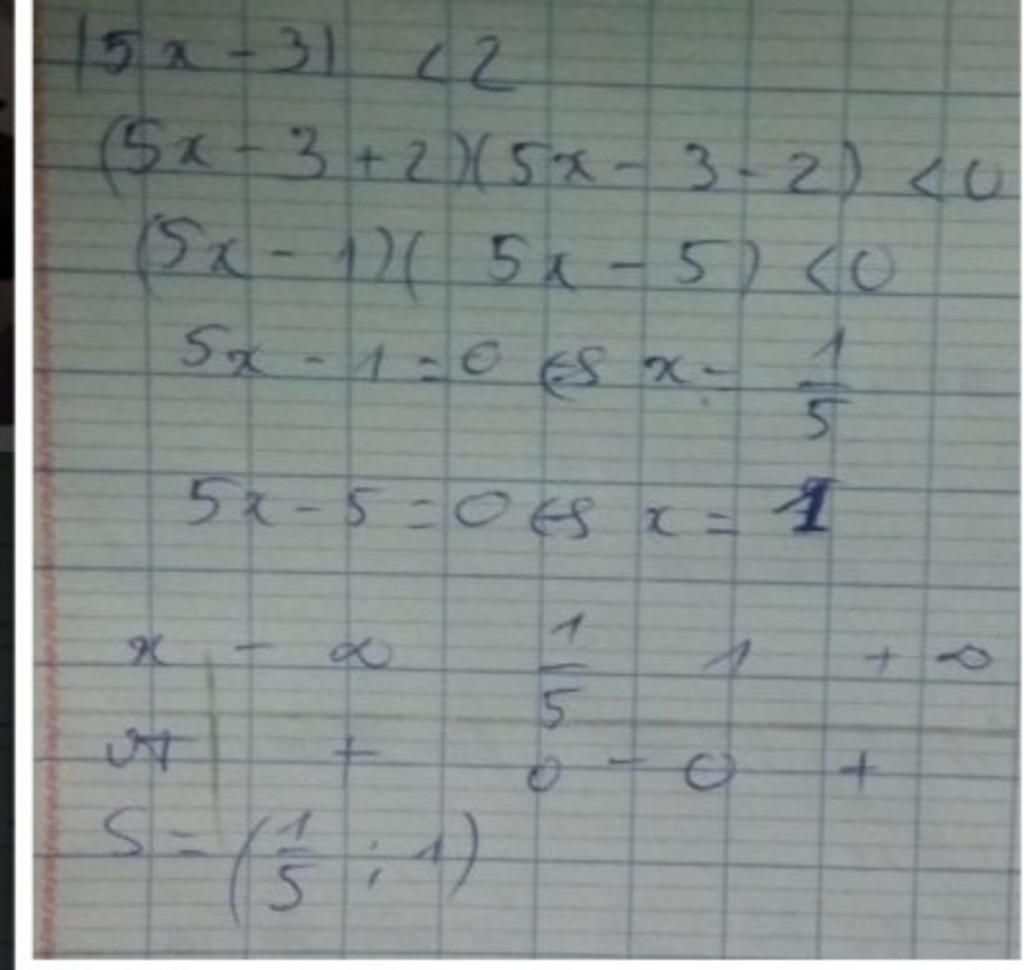 |5x - 3| < 2
(5x - 3 + 2)(5x - 3 - 2) < 0
(5x - 1)( 5x - 5) < 0
5x - 1 = 0 ⇔ x = 1/5
5x - 5 = 0 ⇔ x = 1
x - ∞ 1/5 1 + ∞
+ 0 - 0 +
S = (1/5 ; 1)